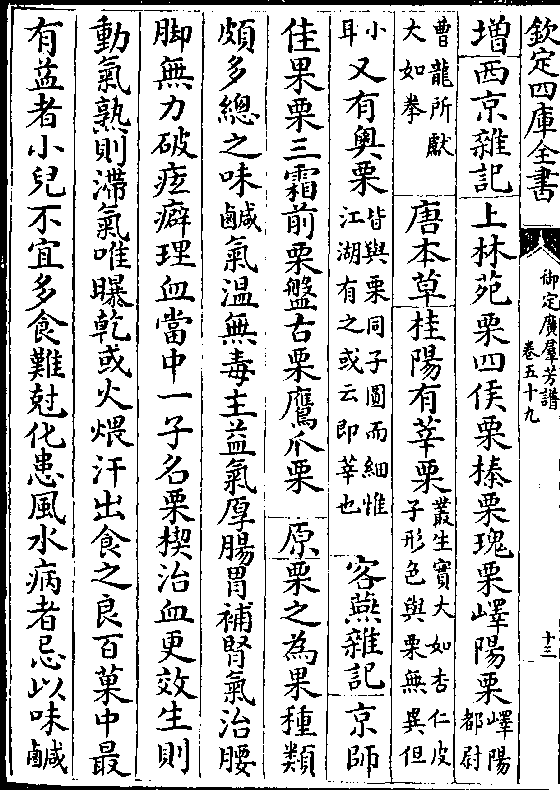 欽定四庫全書
御定廣羣芳譜
卷五十九
十三
增西京雜記上林苑栗四侯栗榛栗瑰栗嶧陽栗嶧陽都尉
曹龍所獻大如拳唐本草桂陽有莘栗叢生實大如杏仁皮子形色與栗無異但
小耳又有奥栗皆與栗同子圓而細惟江湖有之或云即莘也客燕雜記京師
佳果栗三霜前栗盤古栗鷹爪栗原栗之為果種類
頗多總之味鹹氣溫無毒主益氣厚腸胃補腎氣治腰
脚無力破痃癖理血當中一子名栗楔治血更效生則
動氣熟則滯氣唯曝乾或火煨汗出食之良百菓中最
有益者小兒不宜多食難尅化患風水病者忌以味鹹